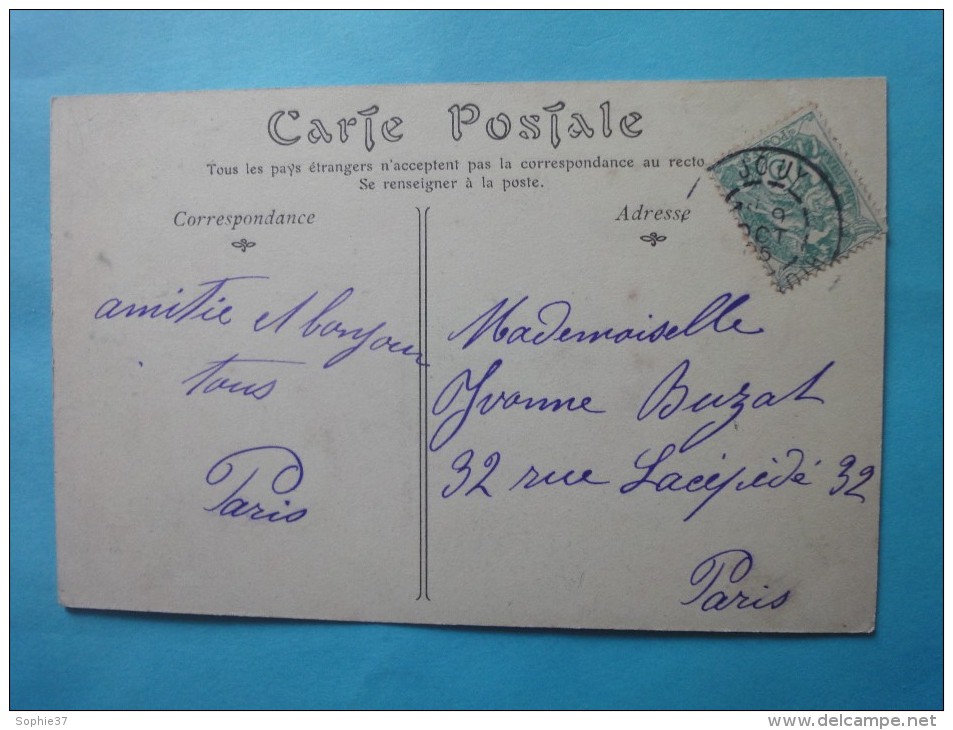 Carte Postale
Tous les pays étrangers n'acceptent pas la correspondance au recto
Se renseigner à la poste.
Correspondance
Adresse
JOUY
9
OCT
amitie et bonjour
tous
Paris
Mademoiselle
Yvonne Buzat
32 rue Lacépédé 32
Paris
Sophie37
www.delcampe.net